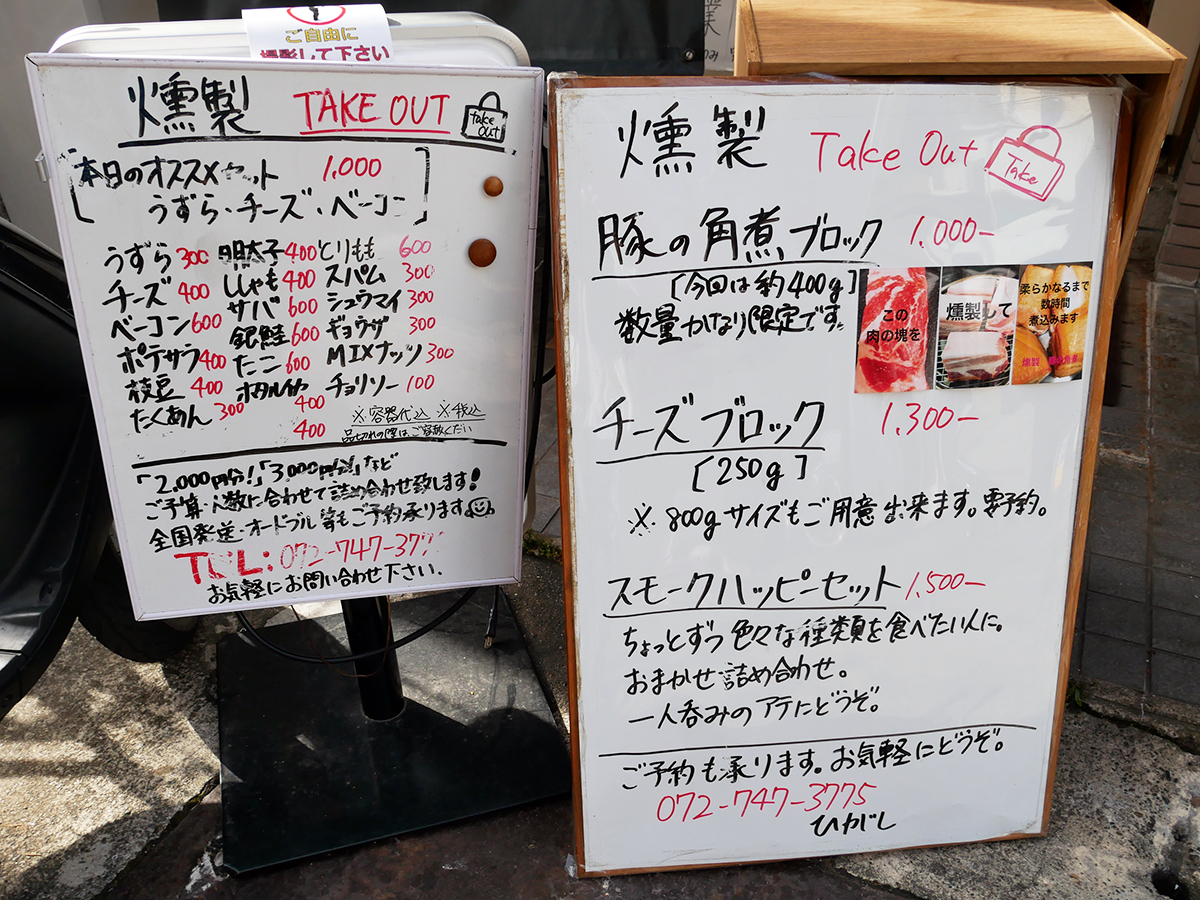 ご自由に
撮影して下さい
燻製 TAKE OUT take out
本日のオススメセット 1,000
うずら・チーズ・ベーコン
うずら 300 明太子 400 とりもも 600
チーズ 400 ししゃも 400 スパム 300
ベーコン 600 サバ 600 シュウマイ 300
ポテサラ 400 銀鮭 600 ギョウザ 300
枝豆 400 たこ 600 MIXナッツ 300
たくあん 300 ホタルイカ 400 チョリソー 100
400
※容器代込 ※税込
品切れの際はご容赦ください
「2,000円分!」「3,000円分!」など
ご予算・人数に合わせて詰め合わせ致します!
全国発送・オードブル等もご予約承ります
TEL:072-747-377
お気軽にお問い合わせ下さい.
燻製 Take Out Take
豚の角煮ブロック 1,000-
[今回は約400g]
数量かなり限定です。
この
肉の塊を
燻製して
柔らかなるまで
数時間
煮込みます
チーズブロック 1,300-
[250g]
※800gサイズもご用意出来ます。要予約。
スモークハッピーセット 1,500-
ちょっとずつ色々な種類を食べたい人に。
おまかせ詰め合わせ。
一人呑みのアテにどうぞ。
ご予約も承ります。お気軽にどうぞ。
072-747-3775
ひがし